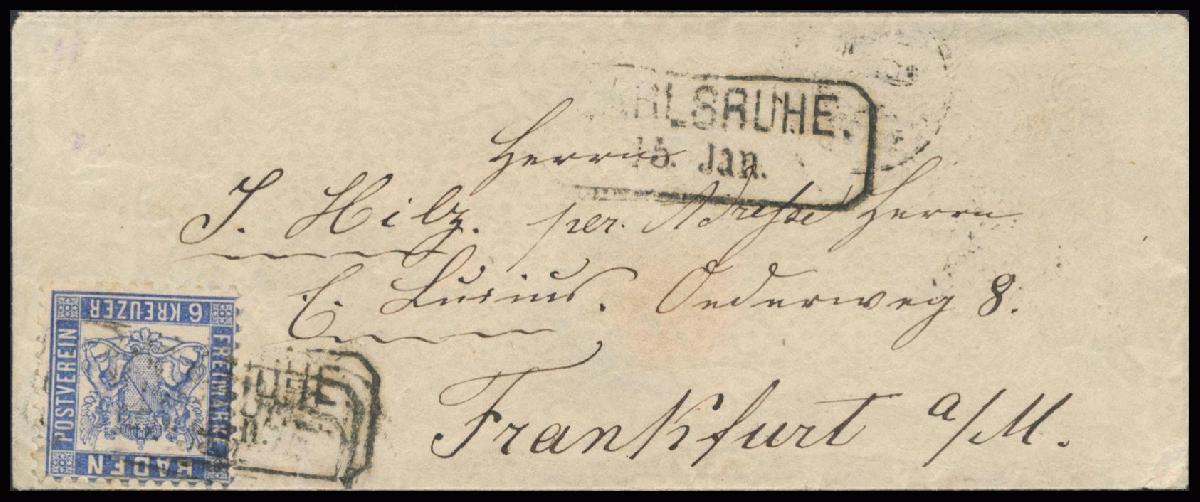 KARLSRUHE.
15. Jan.
Herrn
J. Hilz. per. Adresse Herrn
C. Lucius. Oederweg 8.
Frankfurt a/M.
6 KREUZER
POSTVEREIN
FREIMARKE
BADEN
RUHE
Jan.